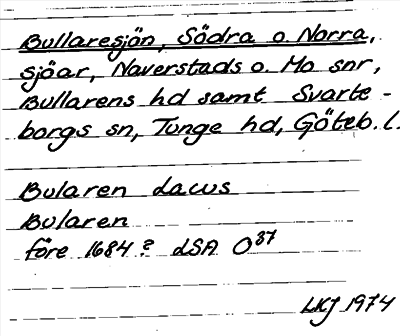 Bullaresjön, Södra o Norra,
sjöar, Naverstads o. Mo snr,
Bullarens hd samt Svarte-
borgs sn, Tunge hd, Göteb. l.
Bularen Lacus
Bularen
före 1684? LSA O37
LKJ 1974